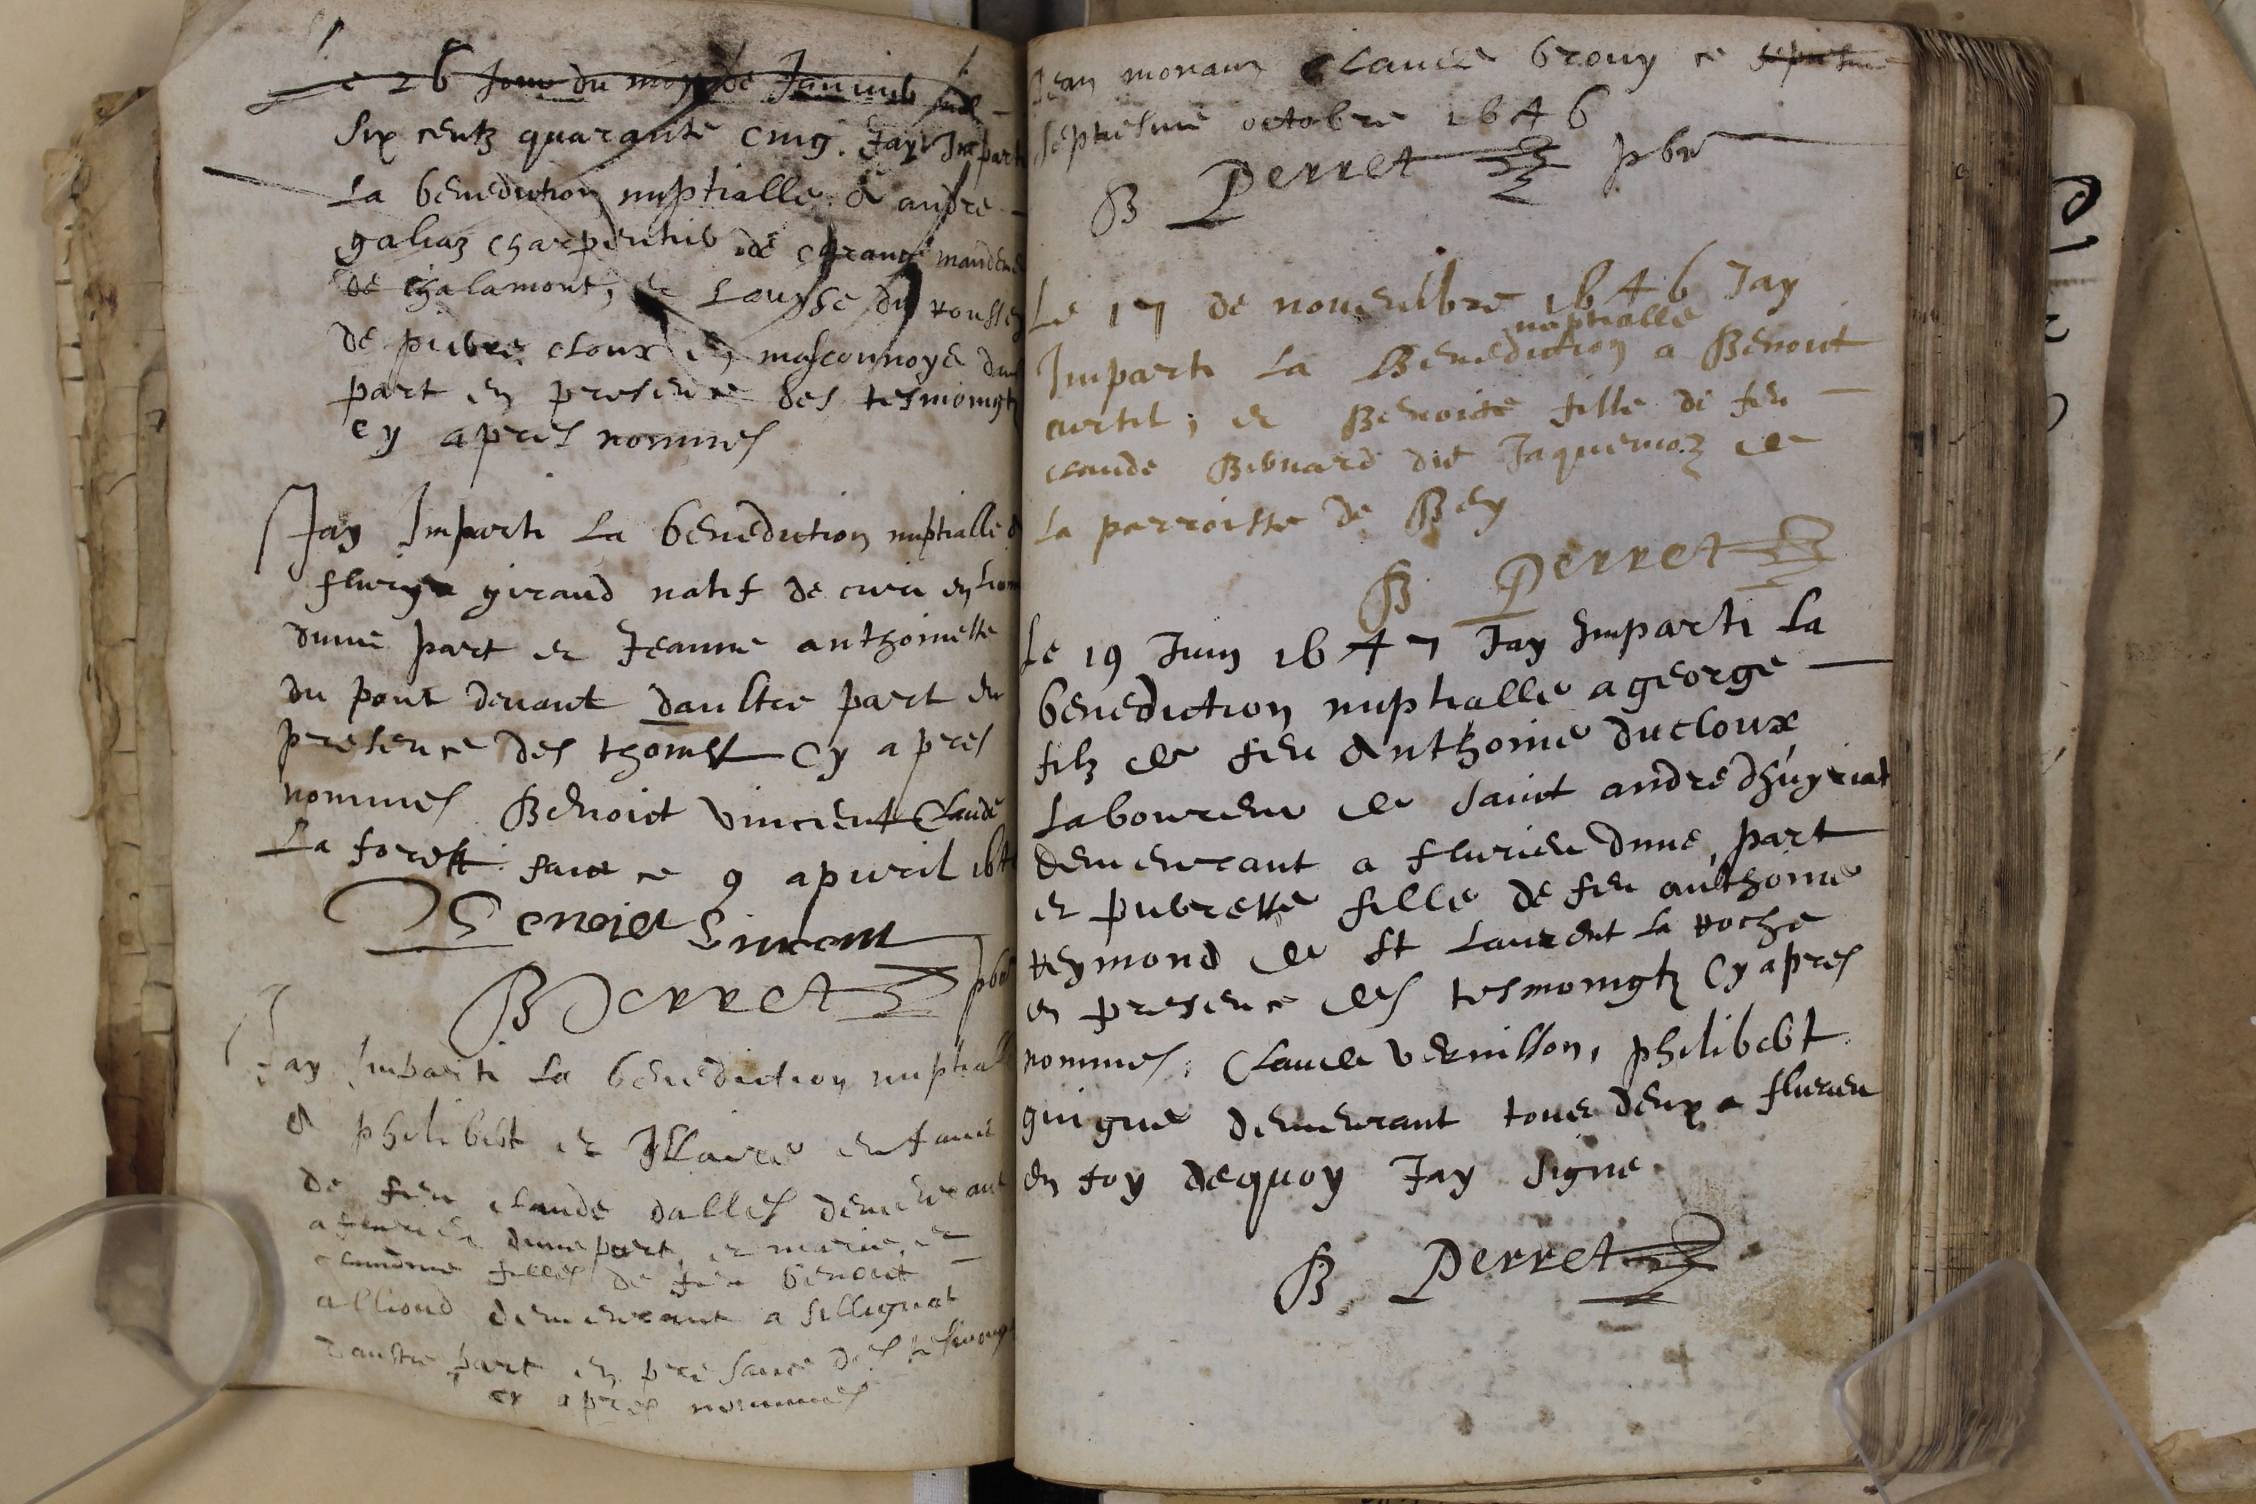 e 26 Jour du moys de Januier
Six centz quarante cinq. Jay Impart
La benediction nuptialle. a andre
galiaz charpentier de mandem
de chalamont, et Louyse du rousse
de pierre cloux en masconnoys dau
part en presence des tesmoingtz
cy apres nommes
Jay Imparti La benediction nuptialle a
giraud natif de en
dune part et Jeanne anthoinette
du pont deuant daultre part en
presence des cy apres
nommes Benoict Vincent Claude
La forest faict ce 9 apuril 164
Benoict Vincent
B Perret pbr
Jay Imparti La benediction nuptiall
a philibert et Illaire enfans
de feu claude dalles demeurant
a flurieu dune part, et marie, et
claudine filles de feu benoict
alliond demeurant a sillignat
daultre part en presance des tesmoingt
cy apres nommes
Jean monaux Claude brouy ce septiesme
septiesme octobre 1646
B Perret pbr
Le 17 de nouembre 1646 Jay
nuptialle
Imparti La Benediction a Benoict
curtil ; et Benoicte fille de feu
claude Bernard dit Jaquemoz de
La parroisse de Bey
B Perret
Le 19 Juin 1647 Jay Imparti La
benediction nuptialle a george
filz de feu Anthoine ducloux
Laboureur de Sainct andre dhuyriat
demeurant a flurieu dune part
et pierrette fille de feu anthoine
reymond de St Laurent La roche
en presence des tesmoingtz Cy apres
nommes, Claude vernisson, philibert
guigue demeurant tous deux a flurieu
en foy dequoy Jay signe.
B Perret